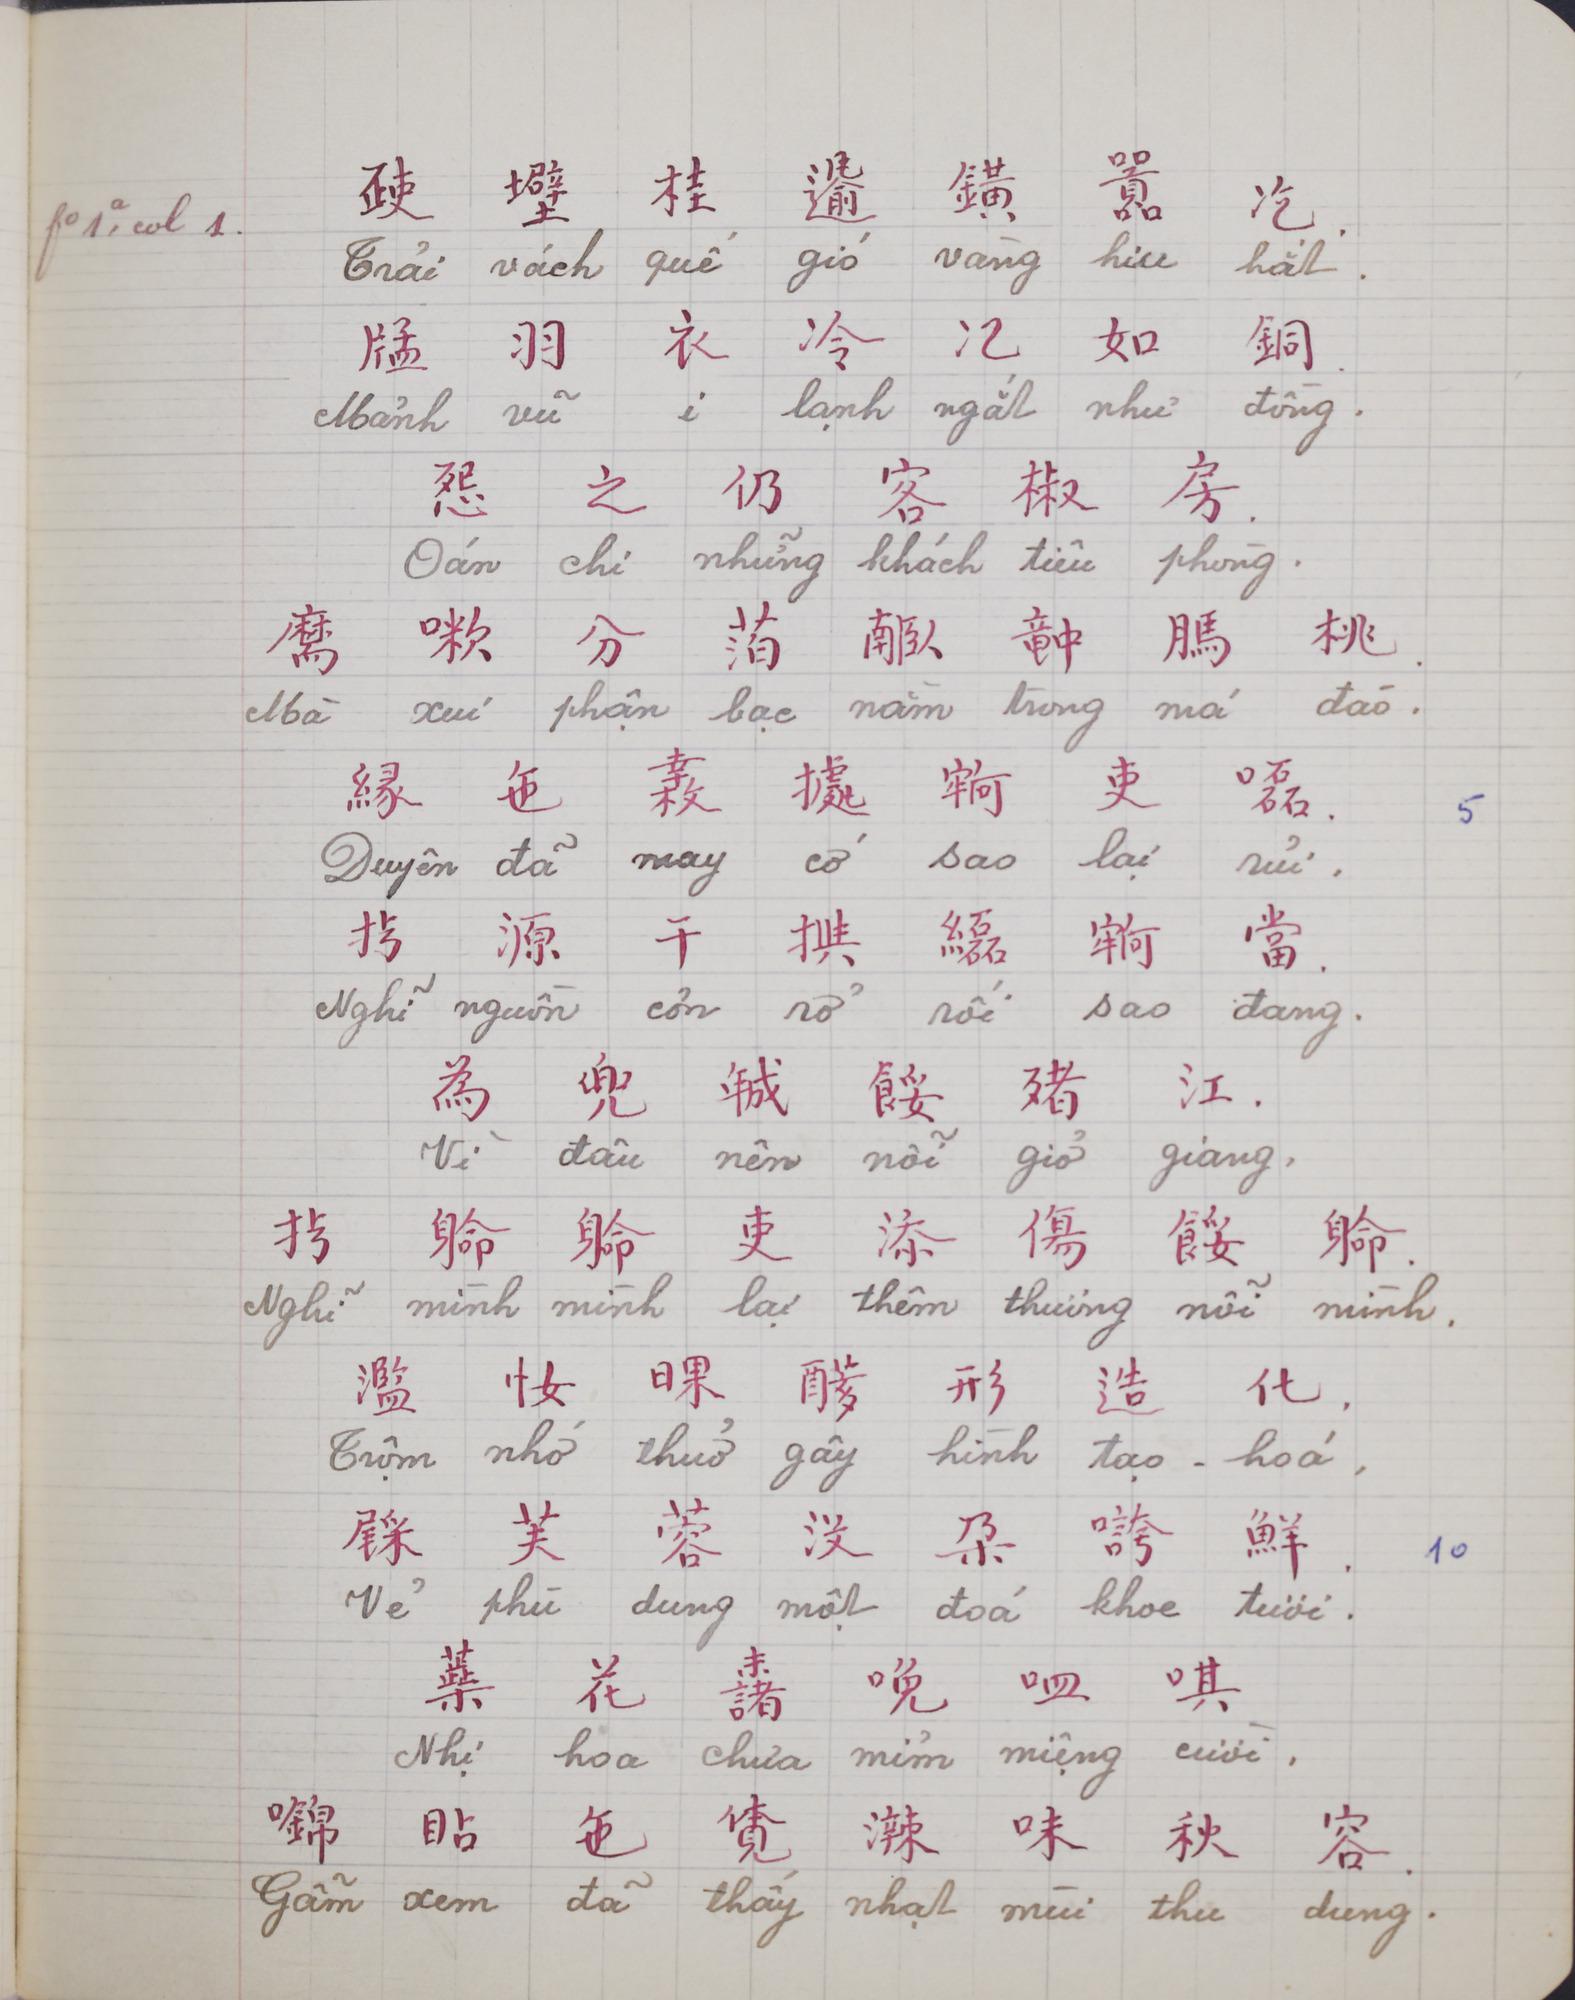 fº 1ª, col 1.
𣦰 壁 桂 𨗺 鐄 囂 汔.
Trải vách quế gió vàng hiu hắt.
𤗖 羽 衣 冷 汽 如 銅.
Mảnh vũ i lạnh ngắt như đồng.
怨 之 仍 客 椒 房.
Oán chi những khách tiêu phòng.
𢱖 嗽 分 萡 𦣰 𥪞 𦟐 桃.
Mà xui phận bạc nằm trong má đào.
緣 㐌 𢆧 據 𡫡 吏 𥗜.
Duyên đã may cớ sao lại rủi.
𢪀 源 干 𢴑 繦 𡫡 當.
Nghĩ nguồn cơn rở rối sao đang.
為 兜 𢧚 餒 𣩂 江.
Vì đâu nên nỗi giở giang.
𢪀 𨉟 𨉟 吏 添 傷 餒 𨉟.
Nghĩ mình mình lại thêm thương nỗi mình.
濫 𢖵 𣇫 𨠳 形 造 化.
Trộm nhớ thuở gây hình tạo - hoá,
𨤔 芙 蓉 没 朶 誇 鮮.
Vẻ phù dung một đoá khoe tươi.
蘂 花 𣗓 𠵘 𠰘 唭
Nhị hoa chưa mỉm miệng cười,
㘌 䀡 㐌 𧡊 溂 味 秋 容.
Gẫm xem đã thấy nhạt mùi thu dung.
5
10